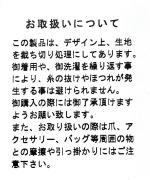 お取扱いについて
この製品は、デザイン上、生地
を裁ち切り処理にしてあります。
御着用や、御洗濯を繰り返す事
により、糸の抜けやほつれが発
生する事は避けられません。
御購入の際には御了承頂けます
ようお願い致します。
また、お取り扱いの際は爪、ア
クセサリー、バッグ等周囲の物
との摩擦や引っ掛かりにはご注
意下さい。